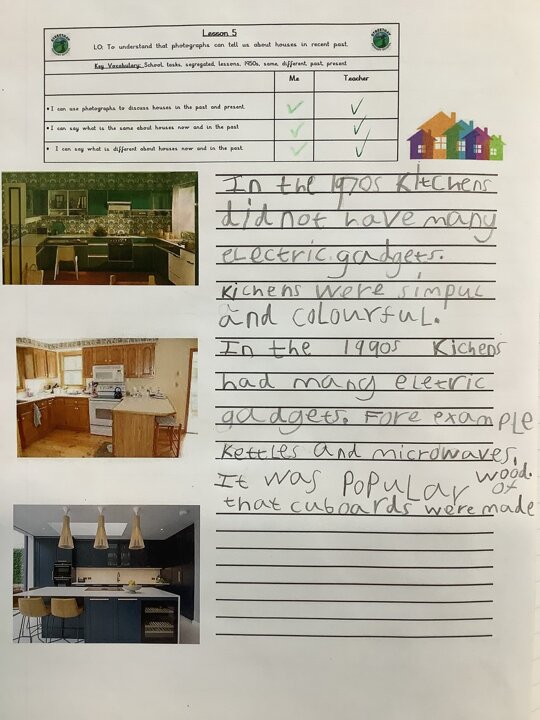 Lesson 5
LO: To understand that photographs can tell us about houses in recent past.
Key Vocabulary: School, tasks, segregated, lessons, 1950s, same, different, past, present
Me Teacher
• I can use photographs to discuss houses in the past and present.
• I can say what is the same about houses now and in the past.
• I can say what is different about houses now and in the past.
In the 1970s Kitchens
did not have many
electric gadgets.
Kichens were simpul
and colourful.
In the 1990s Kichens
had many eletric
gadgets. Fore example
Kettles and microwaves.
It was Popular
that cuboards were made
of
wood.